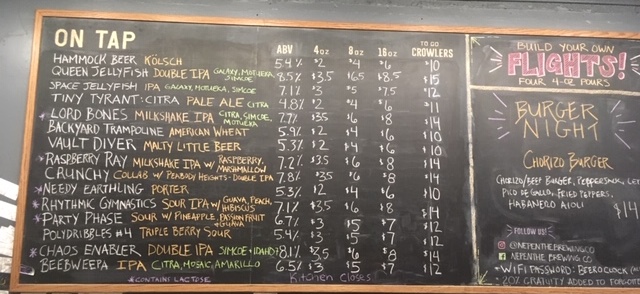 ON TAP ABV 4oz 8oz 16oz TO GO CROWLERS
HAMMOCK BEER KÖLSCH 5.4% $2 $4 $6 $10
QUEEN JELLYFISH DOUBLE IPA GALAXY, MOTUEKA, SIMCOE 8.5% $3.5 $6.5 $8.5 $15
SPACE JELLYFISH IPA GALAXY, MOTUEKA, SIMCOE 7.1% $3 $5 $7.5 $12
TINY TYRANT: CITRA PALE ALE CITRA 4.8% $2 $4 $6 $11
* LORD BONES MILKSHAKE IPA CITRA, SIMCOE, MOTUEKA 7.7% $3.5 $6 $8 $14
BACKYARD TRAMPOLINE AMERICAN WHEAT 5.9% $2 $4 $6 $10
VAULT DIVER MALTY LITTLE BEER 5.3% $2 $4 $6 $10
* RASPBERRY RAY MILKSHAKE IPA W/ RASPBERRY, MARSHMALLOW 7.2% $3.5 $6 $8 $14
CRUNCHY COLLAB W/ PEABODY HEIGHTS - DOUBLE IPA 7.8% $3.5 $6 $8 $14
* NEEDY EARTHLING PORTER 5.3% $2 $4 $6 $10
* RHYTHMIC GYMNASTICS SOUR IPA W/ GUAVA, PEACH, HIBISCUS 7.1% $3.5 $6 $8 $14
* PARTY PHASE SOUR W/ PINEAPPLE, PASSION FRUIT + GUAVA 6.7% $3 $5 $7 $12
POLYDRIBBLES #4 TRIPLE BERRY SOUR 5.4% $3 $5 $7 $12
* CHAOS ENABLER DOUBLE IPA SIMCOE + IDAHO7 8.1% $3.5 $6 $8 $14
BEEBWEEPA IPA CITRA, MOSAIC, AMARILLO 6.5% $3 $5 $7 $12
* CONTAINS LACTOSE
Kitchen Closes
BUILD YOUR OWN
FLIGHTS!
FOUR 4-OZ POURS
BURGER
NIGHT
CHORIZO BURGER
CHORIZO/BEEF BURGER, PEPPERJACK, LET
PICO DE GALLO, FRIED PEPPERS,
HABANERO AIOLI $14
FOLLOW US!
@NEPENTHEBREWINGCO
NEPENTHE BREWING CO
• WIFI PASSWORD: BEERO CLOCK
• 20% GRATUITY ADDED TO FORGOTTE